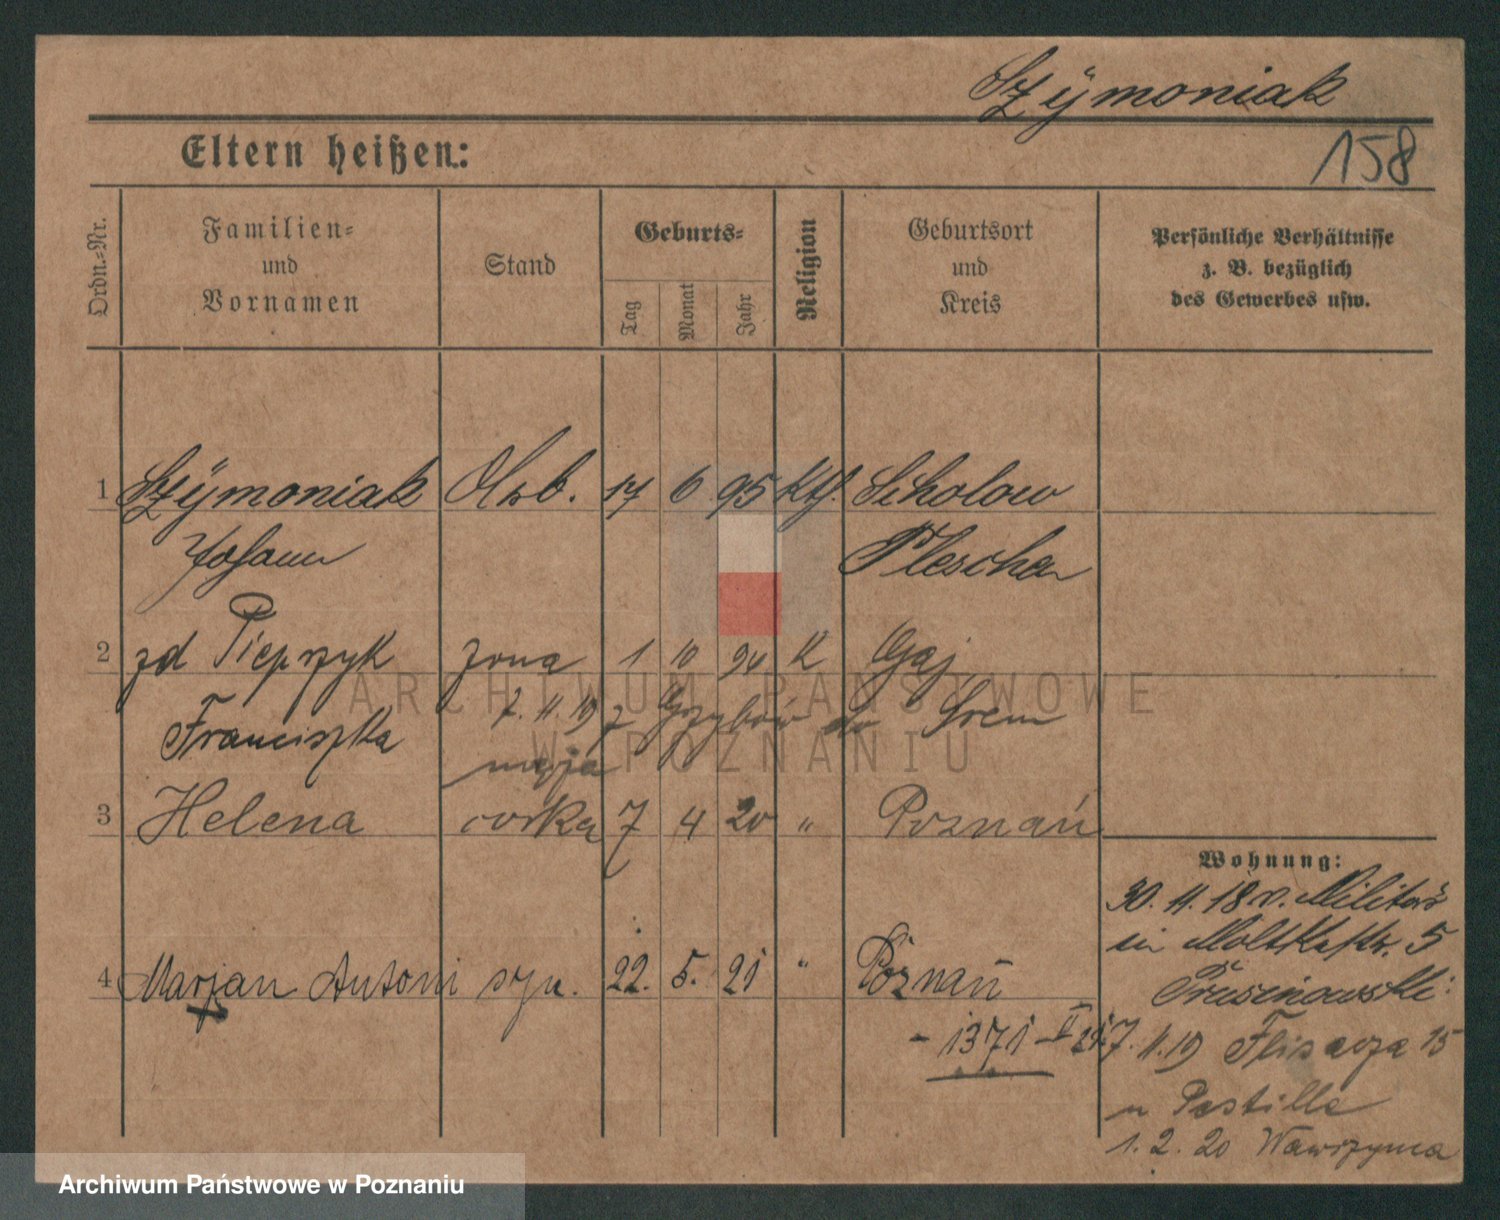 Szÿmoniak
158
Eltern heißen:
Ordn.-Nr.
Familien-
und
Vornamen
Stand
Geburts-
Tag
Monat
Jahr
Religion
Geburtsort
und
Kreis
Persönliche Verhältnisse
z. B. bezüglich
des Gewerbes usw.
1 Szÿmoniak 17 6 95 Kth. Scholow
Johann Pleschen
2 zd Pieprzyk żona 1 10 94 K Gaj
Franciszka 7. 11. 19 z Śrem
męża
3 Helena córka 7 4 20 " Poznań
Wohnung:
30. 11. 18 v. Militär
in Moltkestr. 5
4 Marjan Antoni syn. 22. 5. 21 " Poznań
- 1371 - II 21
7. 11. 19 Flisacza 15
u
1. 2. 20 Wawrzyńca
ARCHIWUM PAŃSTWOWE
W POZNANIU
Archiwum Państwowe w Poznaniu